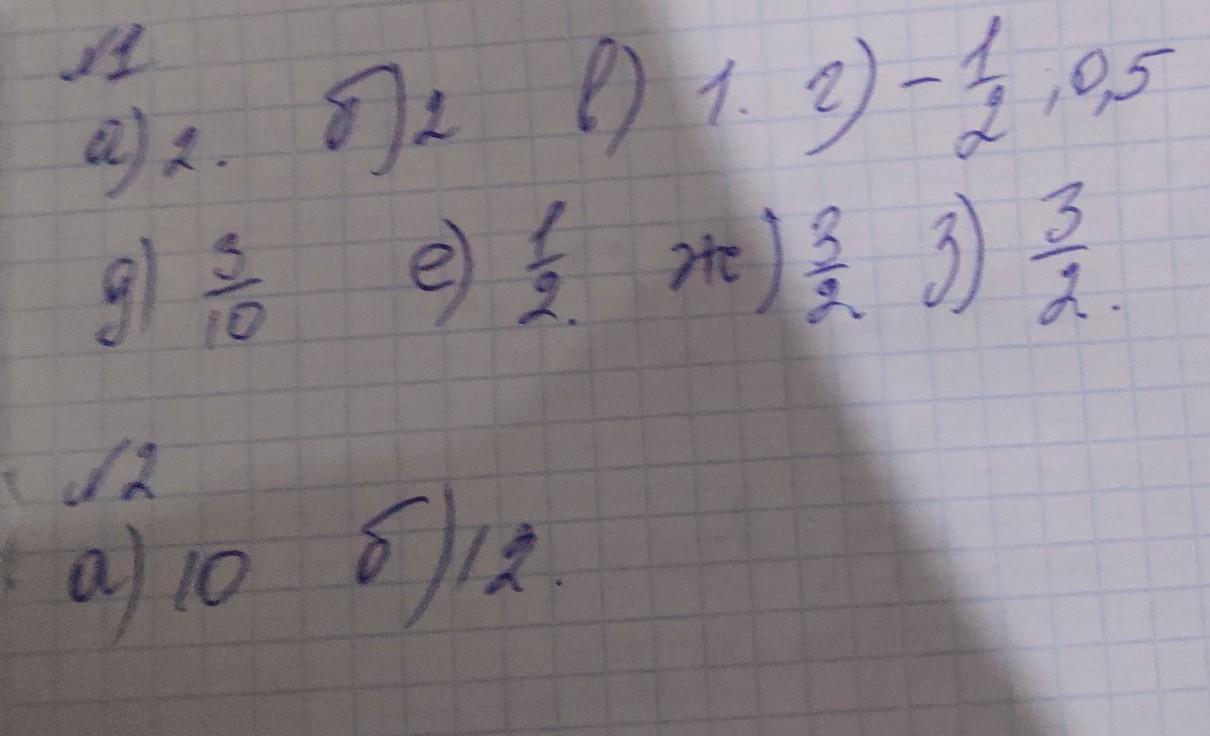 №1
а) 2. б) 2 в) 1. г) -1/2, 0,5
д) 3/10 е) 1/2. ж) 3/2 з) 3/2.
№2
а) 10 б) 12.